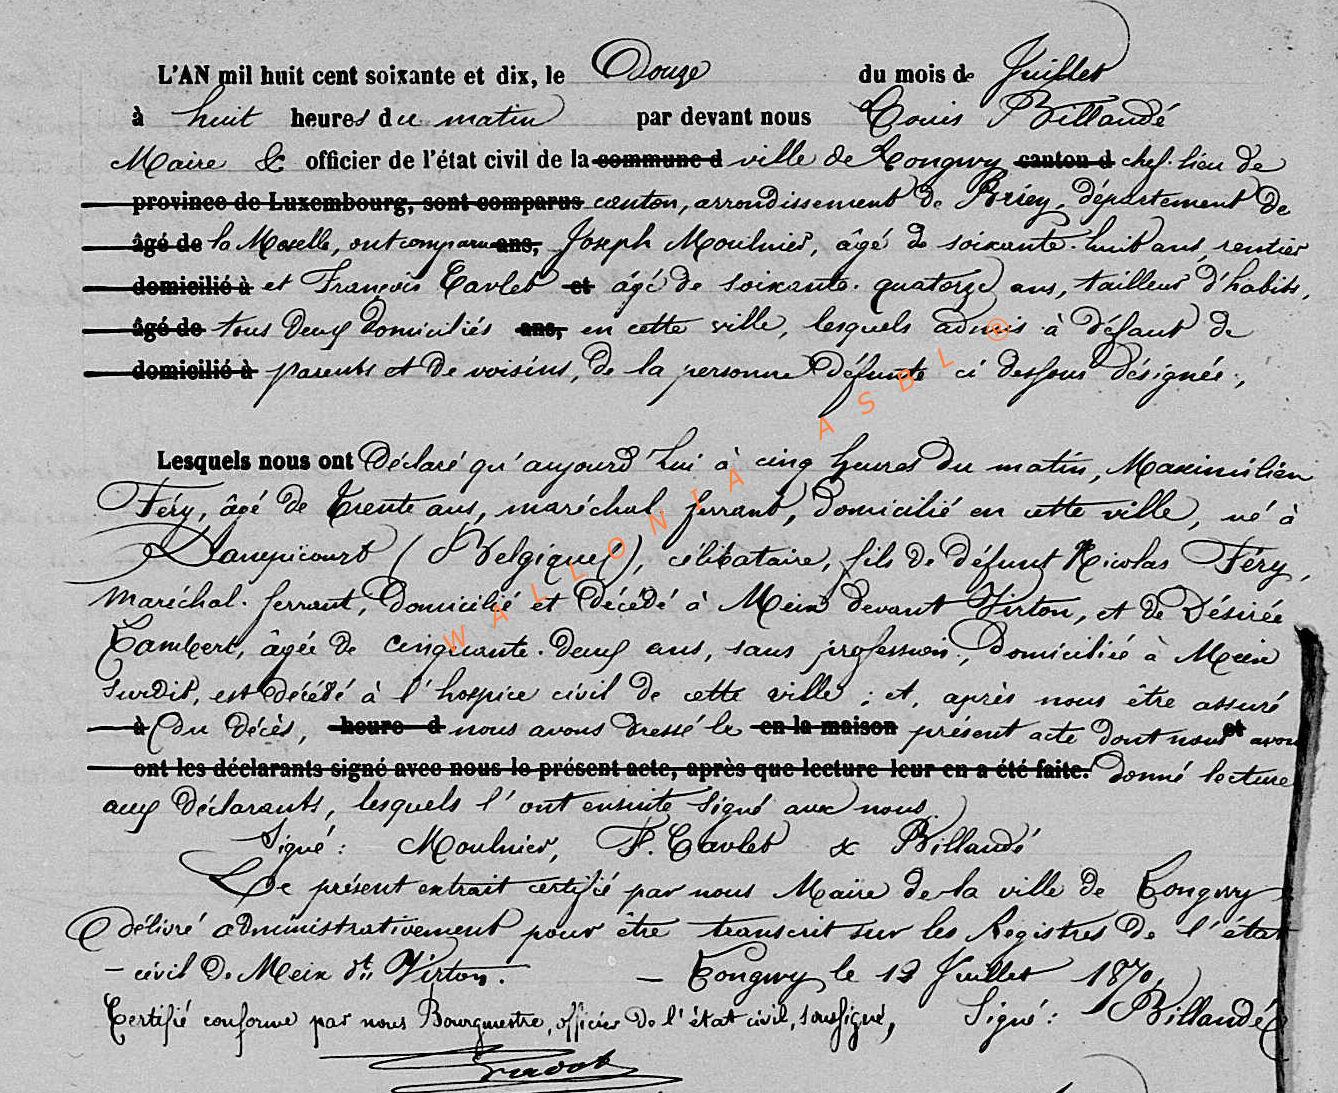 L'AN mil huit cent soixante et dix, le Douze du mois de Juillet
à huit heures du matin par devant nous Louis Billaudé
Maire & officier de l'état civil de la commune d ville de Longwy canton d chef-lieu de
province de Luxembourg, sont comparus canton, arrondissement de Briey, département de
âgé de la Moselle, ont comparu ans, Joseph Moulnier, âgé de soixante-huit ans, rentier
domicilié à et François Carlet et âgé de soixante-quatorze ans, tailleur d'habits,
âgé de tous deux domiciliés ans, en cette ville, lesquels admis à défaut de
domicilié à parents et de voisins, de la personne défunte ci dessous désignée,
Lesquels nous ont Déclaré qu'aujourd'hui à cinq heures du matin, Maximilien
Féry, âgé de trente ans, maréchal ferrant, domicilié en cette ville, né à
(Belgique), célibataire, fils de défunt Nicolas Féry,
maréchal-ferrant, domicilié et décédé à Meix devant Virton, et de Désirée
Lambert, âgée de cinquante-deux ans, sans profession, domiciliée à Meix
susdit, est décédé à l'hospice civil de cette ville; et, après nous être assuré
à du décès, heure d nous avons dressé le en la maison présent acte dont nous et avons
ont les déclarants signé avec nous le présent acte, après que lecture leur en a été faite. donné lecture
aux déclarants, lesquels l'ont ensuite signé avec nous.
Signé: Moulnier, F. Carlet & Billaudé
Le présent extrait certifié par nous Maire de la ville de Longwy
délivré administrativement pour être transcrit sur les Registres de l'état
civil de Meix dt Virton. – Longwy le 12 Juillet 1870,
Certifié conforme par nous Bourgmestre, officier de l'état civil, soussigné, Signé: Billaudé
WALLONIA ASBL ©